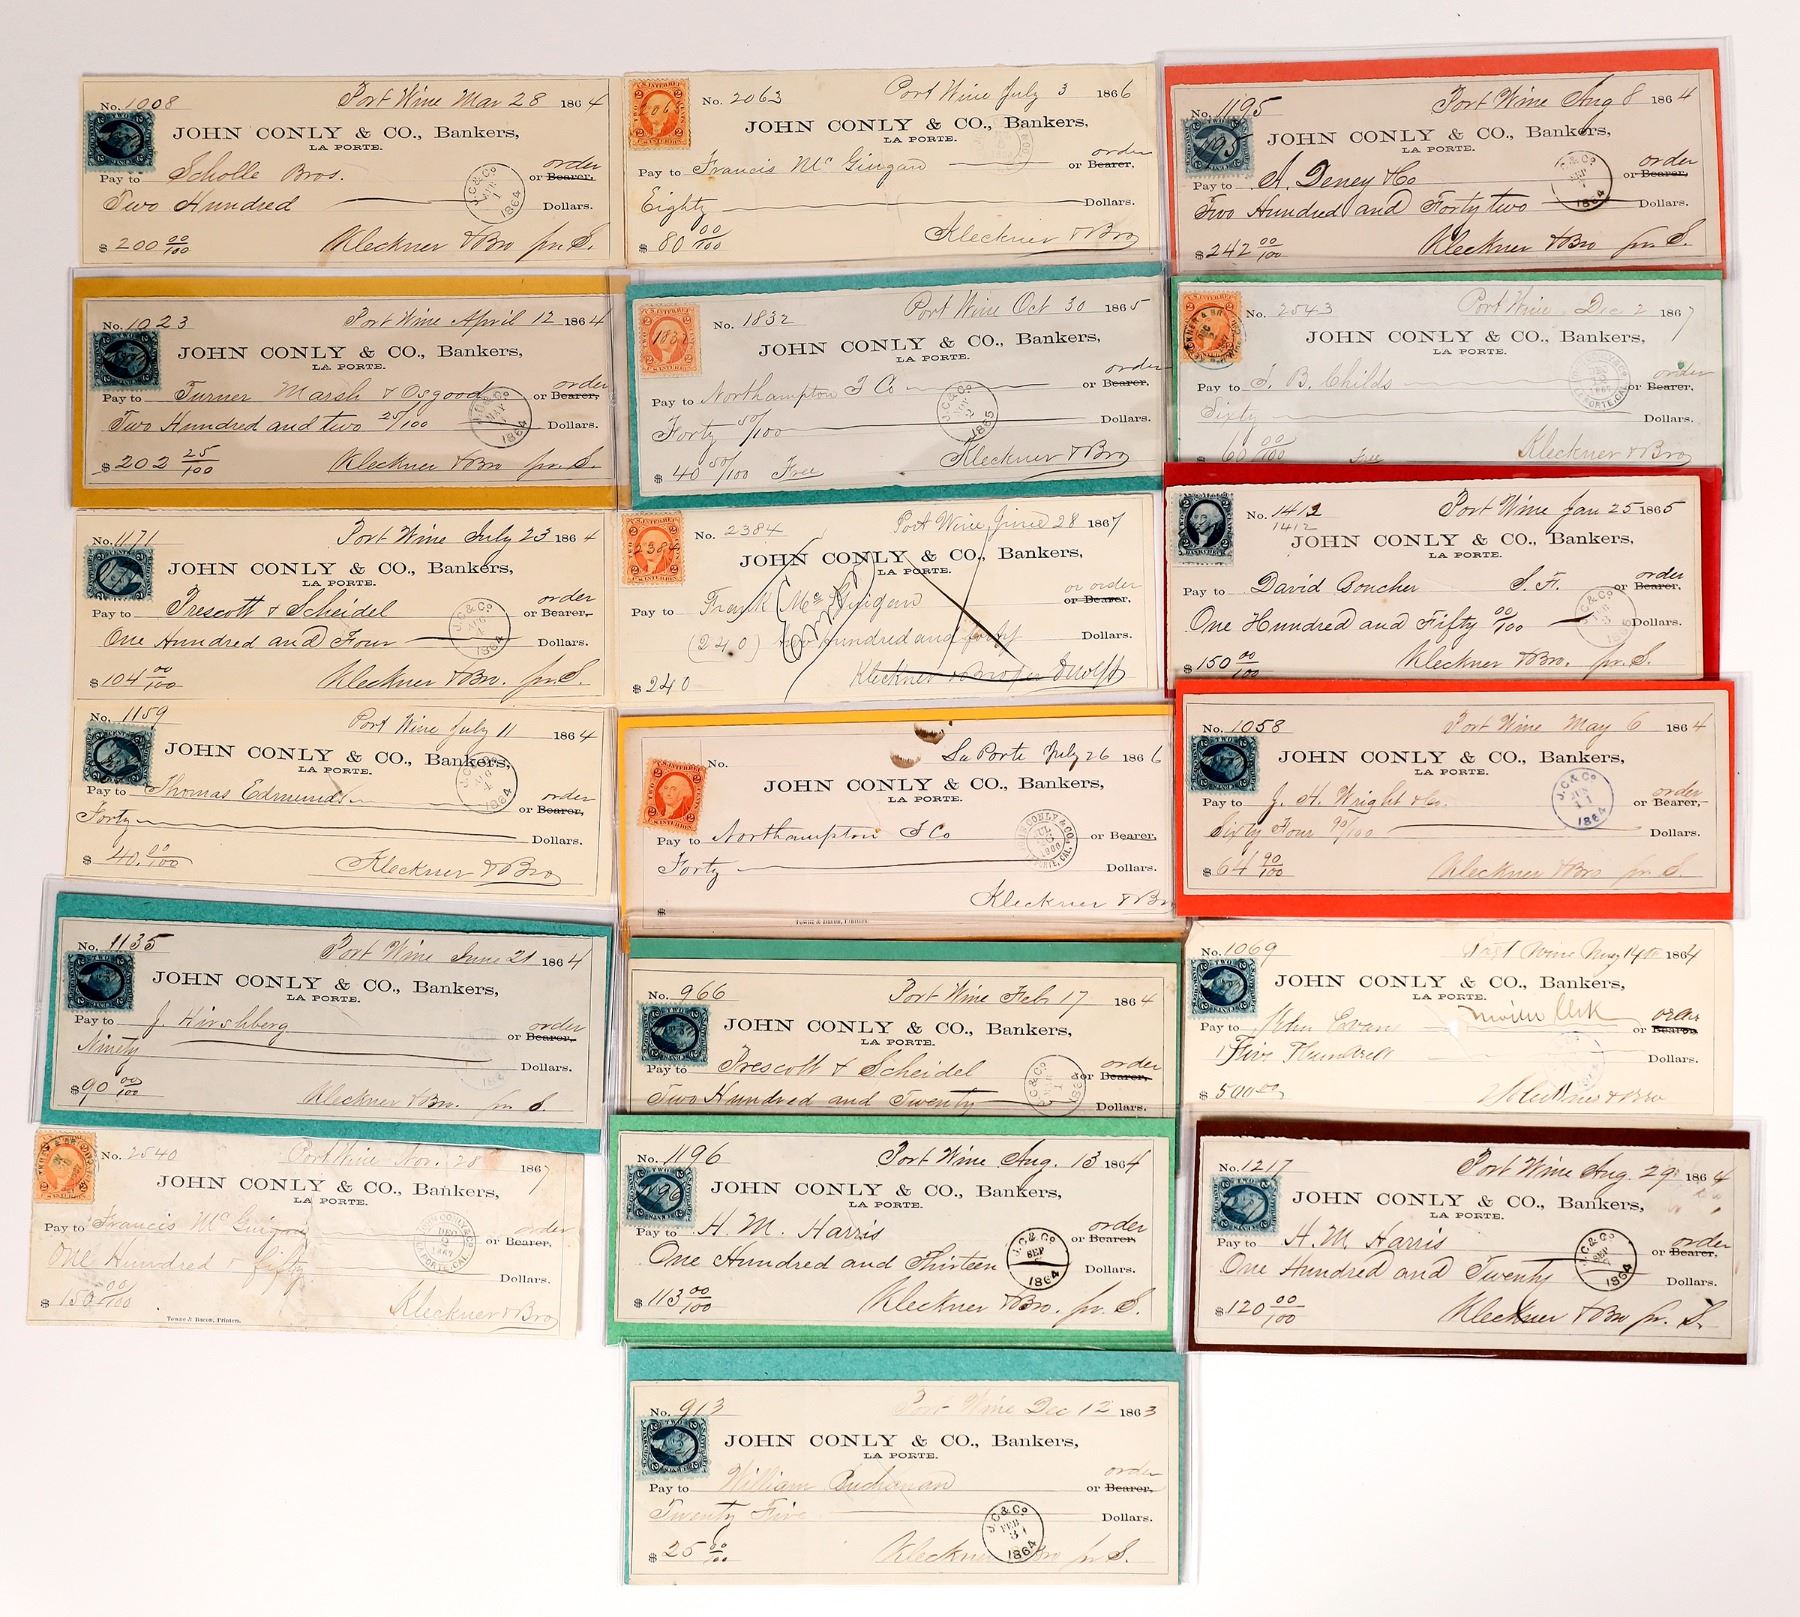 No. 1008 Port Wine Mar 28 1864
JOHN CONLY & CO., Bankers,
LA PORTE.
Pay to Scholle Bros. order or Bearer,
Two Hundred Dollars.
$ 200 00/100 Kleckner & Bro pr. S.
J.C.& Co 1 1864
No. 2063 Port Wine July 3 1866
JOHN CONLY & CO., Bankers,
LA PORTE.
Pay to Francis Mc Guigan order or Bearer,
Eighty Dollars.
$ 80 00/100 Kleckner & Bro
No. 1195 Port Wine Aug 8 1864
JOHN CONLY & CO., Bankers,
LA PORTE.
Pay to A. Deney & Co order or Bearer,
Two Hundred and Forty two Dollars.
$ 242 00/100 Kleckner & Bro pr. S.
J.C.& Co SEP 1 1864
No. 1023 Port Wine April 12 1864
JOHN CONLY & CO., Bankers,
LA PORTE.
Pay to Turner Marsh & Osgood order or Bearer,
Two Hundred and two 25/100 Dollars.
$ 202 25/100 Kleckner & Bro pr S.
J.C.& Co MAY 1864
No. 1832 Port Wine Oct 30 1865
JOHN CONLY & CO., Bankers,
LA PORTE.
Pay to Northampton T Co order or Bearer,
Forty 50/100 Dollars.
$ 40 50/100 Free Kleckner & Bro
J.C.& Co NOV 2 1865
No. 2543 Port Wine Dec 2 1867
JOHN CONLY & CO., Bankers,
LA PORTE.
Pay to J. B. Childs order or Bearer,
Sixty Dollars.
$ 60 00/100 Free Kleckner & Bro
No. 1171 Port Wine July 23 1864
JOHN CONLY & CO., Bankers,
LA PORTE.
Pay to Prescott & Scheidel order or Bearer,
One Hundred and Four Dollars.
$ 104 00/100 Kleckner & Bro. pr. S.
J.C.& Co 1864
No. 2384 Port Wine June 28 1867
JOHN CONLY & CO., Bankers,
LA PORTE.
Pay to Frank Mc Guigan or order or Bearer,
(240) two hundred and forty Dollars.
$ 240 Kleckner & Bro per
No. 1413 Port Wine Jan 25 1865
1412
JOHN CONLY & CO., Bankers,
LA PORTE.
Pay to David Boucher S. F. order or Bearer,
One Hundred and Fifty 00/100 Dollars.
$ 150 00/100 Kleckner & Bro. pr. S.
No. 1159 Port Wine July 11 1864
JOHN CONLY & CO., Bankers,
LA PORTE.
Pay to Thomas Edmunds order or Bearer,
Forty Dollars.
$ 40. 00/100 Kleckner & Bro
No. La Porte July 26 1866
JOHN CONLY & CO., Bankers,
LA PORTE.
Pay to Northampton T Co or Bearer,
Forty Dollars.
$ Kleckner & Bro
JOHN CONLY & CO. JUL 1866 LA PORTE, CAL.
Towne & Bacon, Printers.
No. 1058 Port Wine May 6 1864
JOHN CONLY & CO., Bankers,
LA PORTE.
Pay to J. H. Wright & Co. order or Bearer,
Sixty Four 90/100 Dollars.
$ 64 90/100 Kleckner & Bro pr S.
J.C.& Co JUN 11 1864
No. 1135 Port Wine June 21 1864
JOHN CONLY & CO., Bankers,
LA PORTE.
Pay to J. Hirshberg order or Bearer,
Ninety Dollars.
$ 90 00/100 Kleckner & Bro. pr S.
No. 966 Port Wine Feb 17 1864
JOHN CONLY & CO., Bankers,
LA PORTE.
Pay to Prescott & Scheidel order or Bearer,
Two Hundred and Twenty Dollars.
No. 1069 Port Wine May 14th 1864
JOHN CONLY & CO., Bankers,
LA PORTE.
Pay to John Evan order or Bearer
Five Hundred Dollars.
$ 500 00 Kleckner & Bro
No. 2540 Port Wine Nov. 28 1867
JOHN CONLY & CO., Bankers,
LA PORTE.
Pay to Francis Mc Guigan order or Bearer,
One Hundred & fifty Dollars.
$ 150 00/100 Kleckner & Bro
Towne & Bacon, Printers.
No. 1196 Port Wine Aug. 13 1864
JOHN CONLY & CO., Bankers,
LA PORTE.
Pay to H. M. Harris order or Bearer
One Hundred and Thirteen Dollars.
$ 113 00/100 Kleckner & Bro. pr. S.
J.C.& Co SEP 1864
No. 1217 Port Wine Aug. 29 1864
JOHN CONLY & CO., Bankers,
LA PORTE.
Pay to H. M. Harris order or Bearer,
One Hundred and Twenty Dollars.
$ 120 00/100 Kleckner & Bro pr. S.
J.C.& Co SEP 1864
No. 913 Port Wine Dec 12 1863
JOHN CONLY & CO., Bankers,
LA PORTE.
Pay to William Buchanan order or Bearer,
Twenty Five Dollars.
$ 25 00/100 Kleckner & Bro pr S.
J.C.& Co FEB 1 1864